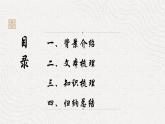 目录
一、背景介绍
二、文本梳理
三、知识梳理
四、归纳总结